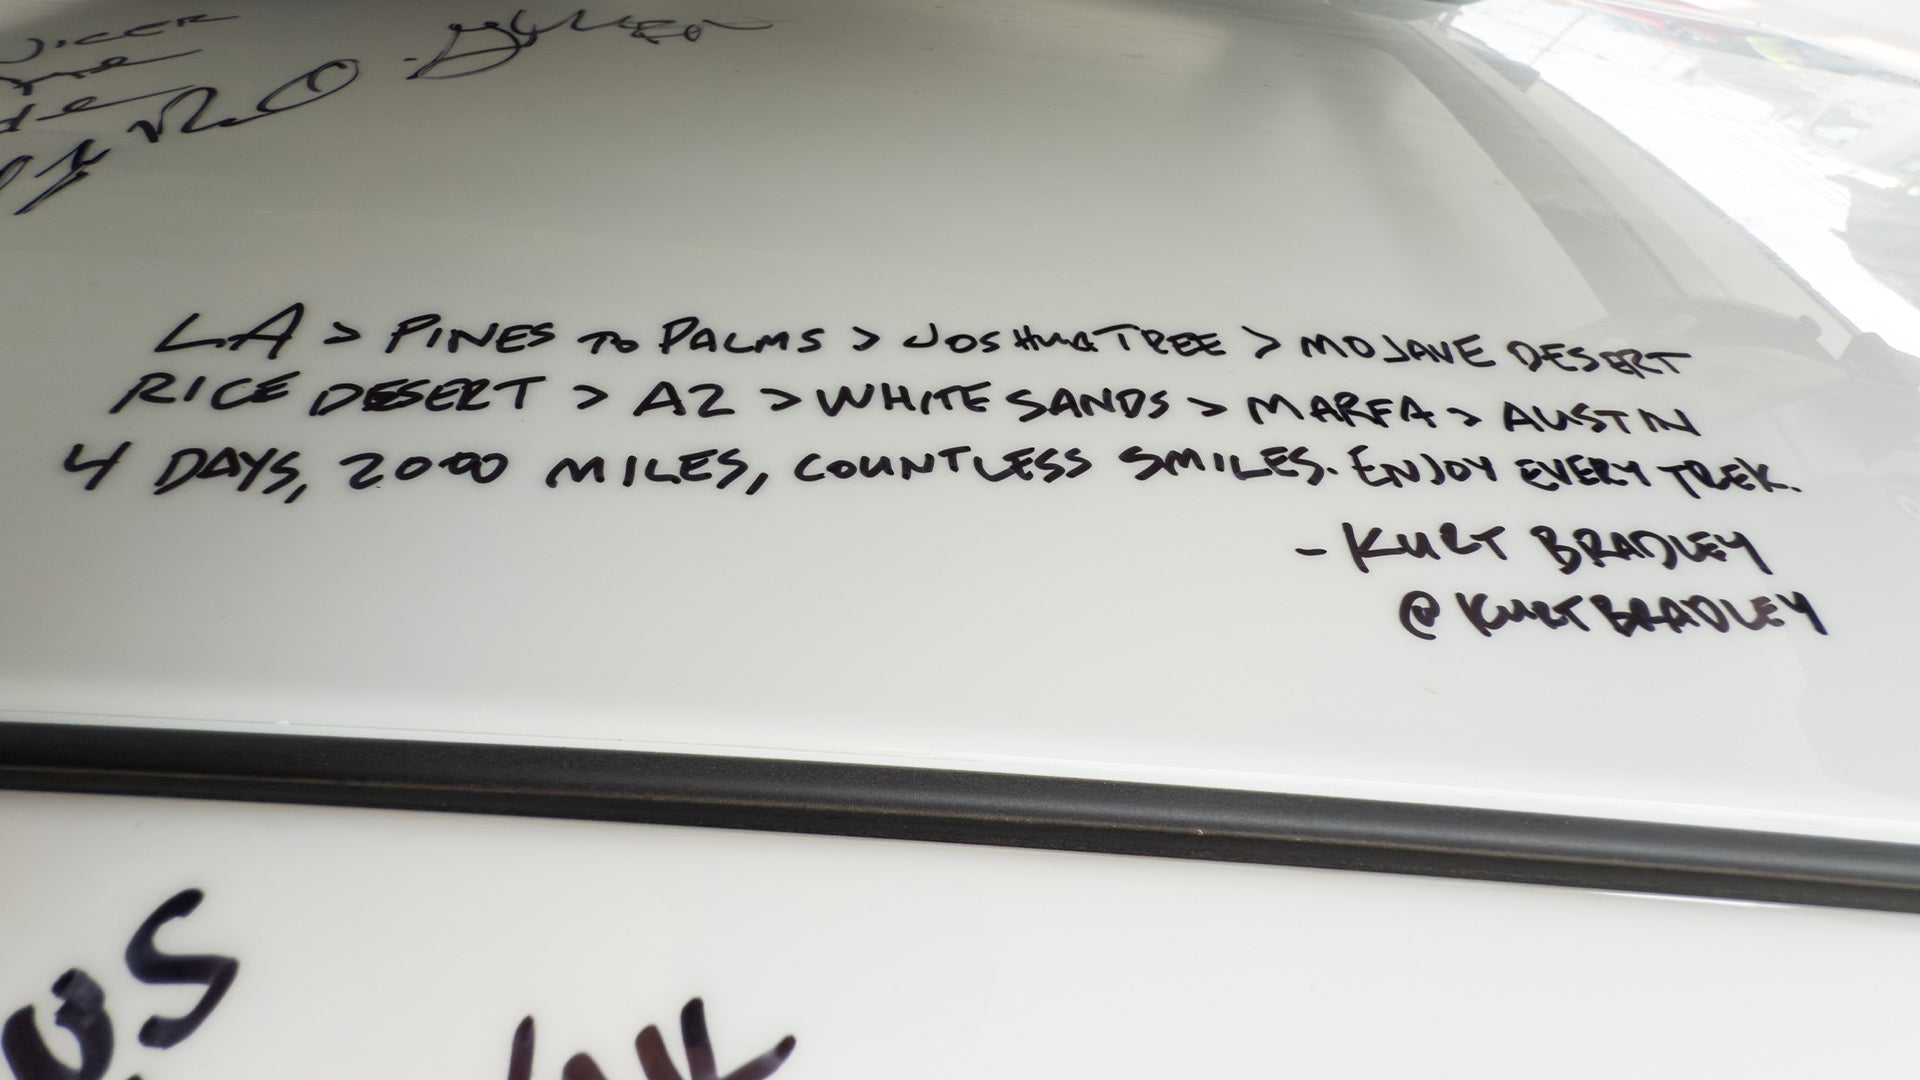 LA > PINES TO PALMS > JOSHUA TREE > MOJAVE DESERT
RICE DESERT > AZ > WHITE SANDS > MARFA > AUSTIN
4 DAYS, 2000 MILES, COUNTLESS SMILES. ENJOY EVERY TREK.
- KURT BRADLEY
@KURTBRADLEY